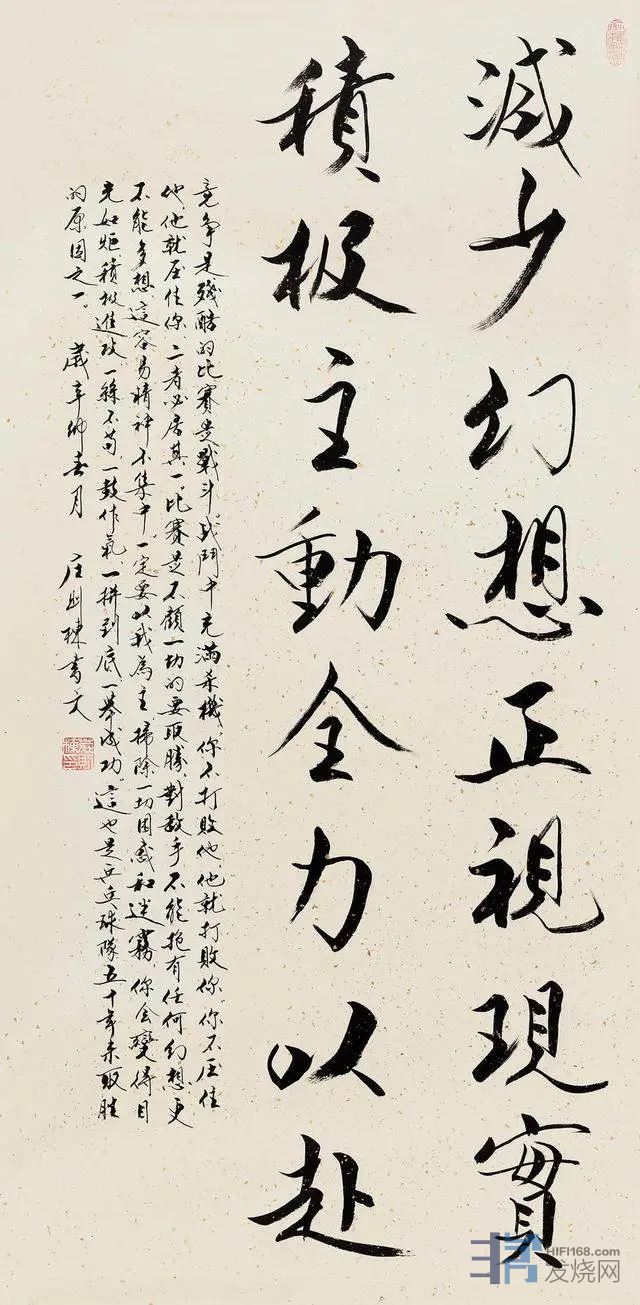 減少幻想正視現實
積极主動全力以赴
竞争是残酷的比賽是戰斗,战鬥中充滿杀機,你不打敗他,他就打敗你。你不压住
他,他就压住你,二者必居其一。比賽是不顧一切的要取勝,對敌手不能抱有任何幻想,更
不能多想,這容易精神不集中。一定要以我為主,掃除一切困惑和迷霧,你会變得目
光如炬,積极進攻,一絲不苟,一鼓作氣,一拼到底,一舉成功。這也是乒乓球隊五十年來取勝
的原因之一。歲辛卯春月 庄則棟書文
HIFI168.com
发烧网